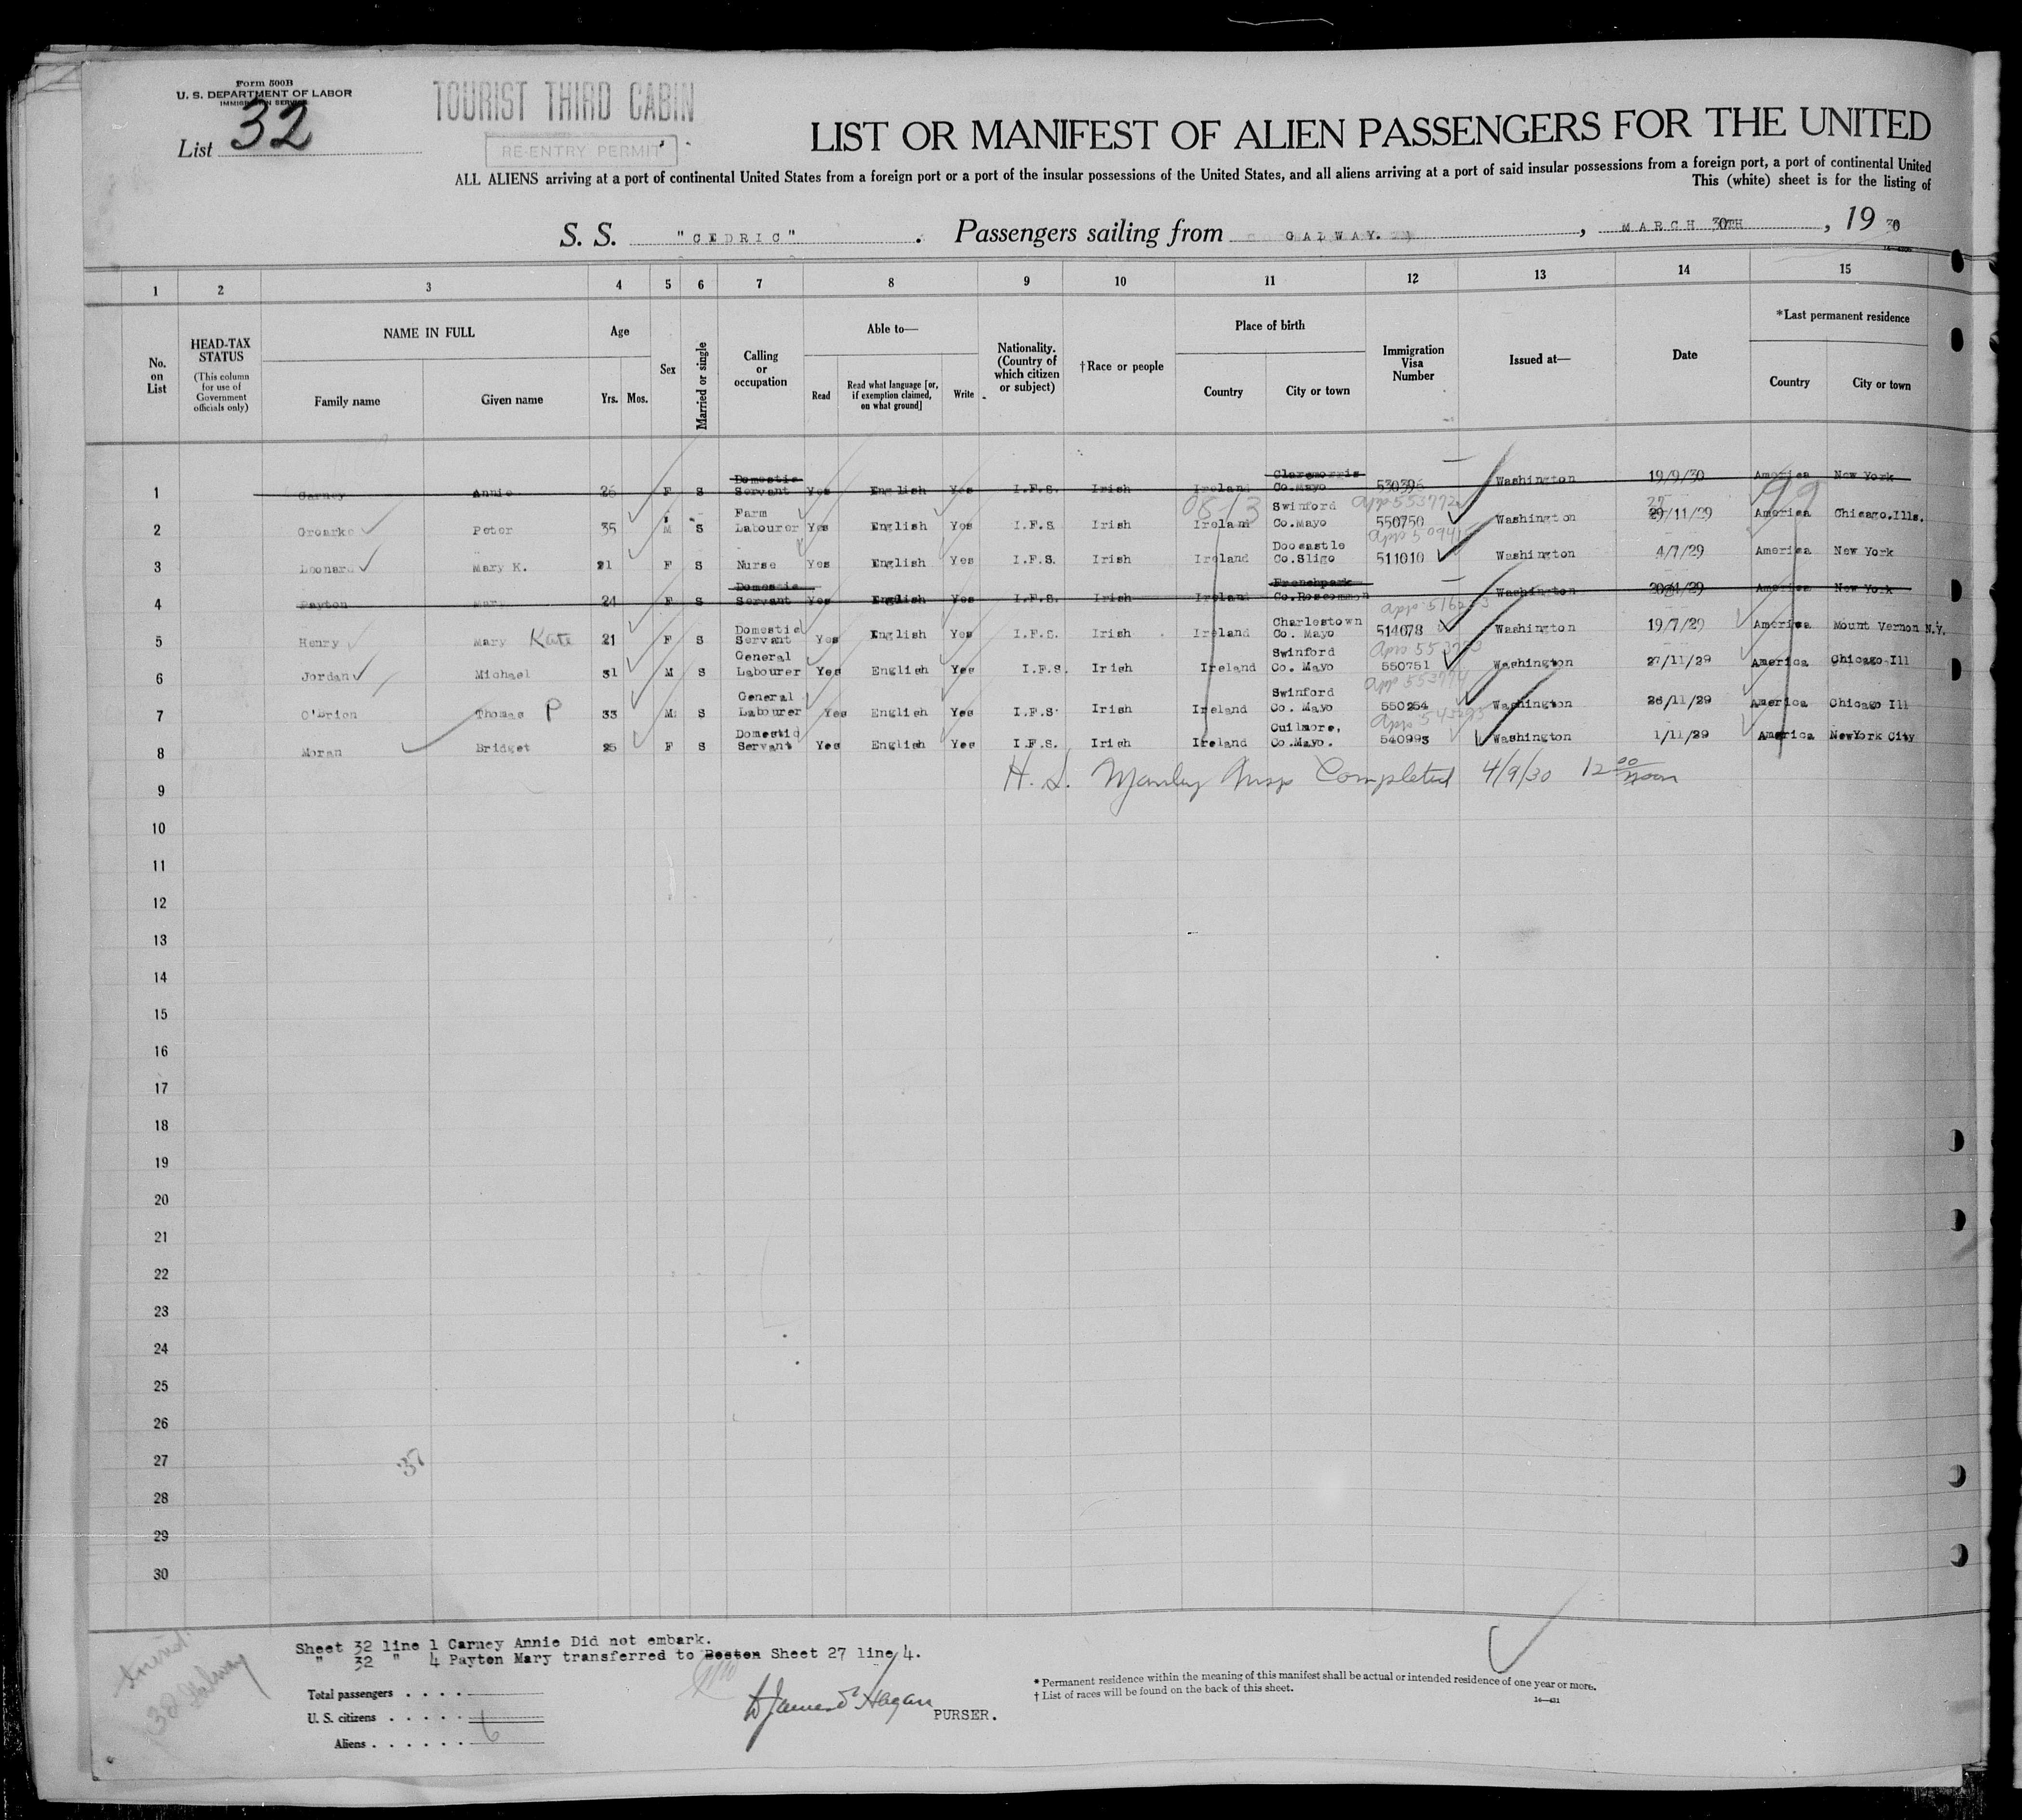 Form 500B
U. S. DEPARTMENT OF LABOR
IMMIGRATION SERVICE
List 32
TOURIST THIRD CABIN
RE-ENTRY PERMIT
LIST OR MANIFEST OF ALIEN PASSENGERS FOR THE UNITED
ALL ALIENS arriving at a port of continental United States from a foreign port or a port of the insular possessions of the United States, and all aliens arriving at a port of said insular possessions from a foreign port, a port of continental United
This (white) sheet is for the listing of
S. S. "CEDRIC". Passengers sailing from GALWAY., MARCH 30TH, 19 30
1 2 3 4 5 6 7 8 9 10 11 12 13 14 15
No. on List
HEAD-TAX STATUS (This column for use of Government officials only)
NAME IN FULL
Family name
Given name
Age
Yrs. Mos.
Sex
Married or single
Calling or occupation
Able to—
Read
Read what language [or, if exemption claimed, on what ground]
Write
Nationality. (Country of which citizen or subject)
†Race or people
Place of birth
Country
City or town
Immigration Visa Number
Issued at—
Date
*Last permanent residence
Country
City or town
1 Carney Annie 26 F S Domestic Servant Yes English Yes I.F.S. Irish Ireland Claremorris Co.Mayo 530396 Washington 19/9/30 America New York
2 Groarke Peter 35 M S Farm Labourer Yes English Yes I.F.S Irish Ireland Swinford Co.Mayo 550750 Washington 29/11/29 America Chicago.Ills.
3 Leonard Mary K. 21 F S Nurse Yes English Yes I.F.S. Irish Ireland Doocastle Co.Sligo 511010 Washington 4/7/29 America New York
4 Payton Mary 24 F S Domestic Servant Yes English Yes I.F.S. Irish Ireland Frenchpark Co.Roscommon Washington America New York
5 Henry Mary Kate 21 F S Domestic Servant Yes English Yes I.F.S. Irish Ireland Charlestown Co. Mayo 514078 Washington 19/7/29 America Mount Vernon N.Y.
6 Jordan Michael 31 M S General Labourer Yes English Yes I.F.S. Irish Ireland Swinford Co. Mayo 550751 Washington 27/11/29 America Chicago Ill
7 O'Brien Thomas P 33 M S General Labourer Yes English Yes I.F.S. Irish Ireland Swinford Co. Mayo 550254 Washington 26/11/29 America Chicago Ill
8 Moran Bridget 25 F S Domestic Servant Yes English Yes I.F.S. Irish Ireland Cuilmore, Co.Mayo. 540993 Washington 1/11/29 America NewYork City
app 553772
99
9 H. S. Manley Insp Completed 4/9/30 12 00 noon
10
11
12
13
14
15
16
17
18
19
20
21
22
23
24
25
26
27
28
29
30
37
Sheet 32 line 1 Carney Annie Did not embark.
" 32 " 4 Payton Mary transferred to Boston Sheet 27 line 4.
Total passengers . . . .
U. S. citizens . . . . .
Aliens . . . . . . 6
PURSER.
* Permanent residence within the meaning of this manifest shall be actual or intended residence of one year or more.
† List of races will be found on the back of this sheet.